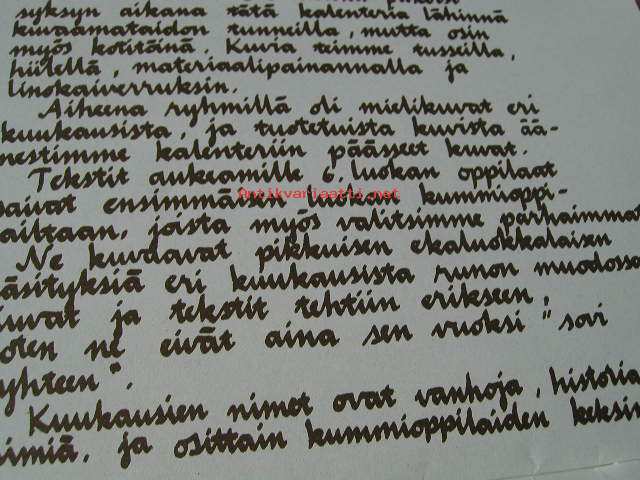 syksyn aikana tätä kalenteria lähinnä
kuvaamataidon tunneilla, mutta osin
myös kotitöinä. Kuvia teimme tusseilla,
hiilellä, materiaalipainannalla ja
linokaiverruksin.
Aiheena ryhmillä oli mielikuvat eri
kuukausista, ja tuotetuista kuvista ää-
nestimme kalenteriin päässeet kuvat.
Tekstit aukeamille 6. luokan oppilaat
saivat ensimmäisen kummioppi-
Antikvariaatti.net
ailtaan, joista myös valitsimme parhaimmat
Ne kuvaavat pikkuisen ekaluokkalaisen
äsityksiä eri kuukausista runon muodossa
uvat ja tekstit tehtiin erikseen,
oten ne eivät aina sen vuoksi "sovi
yhteen".
Kuukausien nimet ovat vanhoja, historia
imiä, ja osittain kummioppilaiden keksim